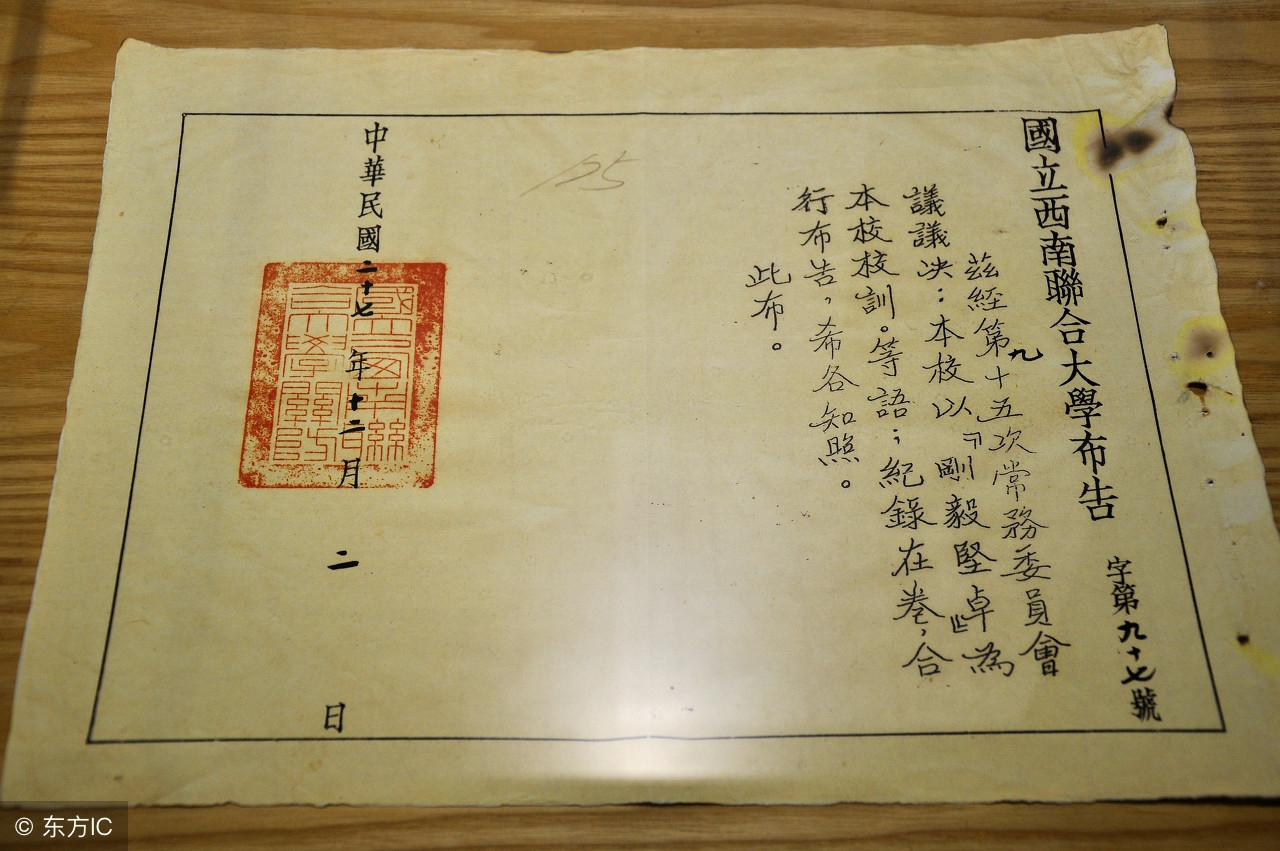 國立西南聯合大學布告 字第九十七號
茲經第九十五次常務委員會
議議决：本校以『剛毅堅卓』為
本校校訓。等語；紀錄在卷，合
行布告，希各知照。
此布。
125
中華民國二十七年十二月二日
© 东方IC